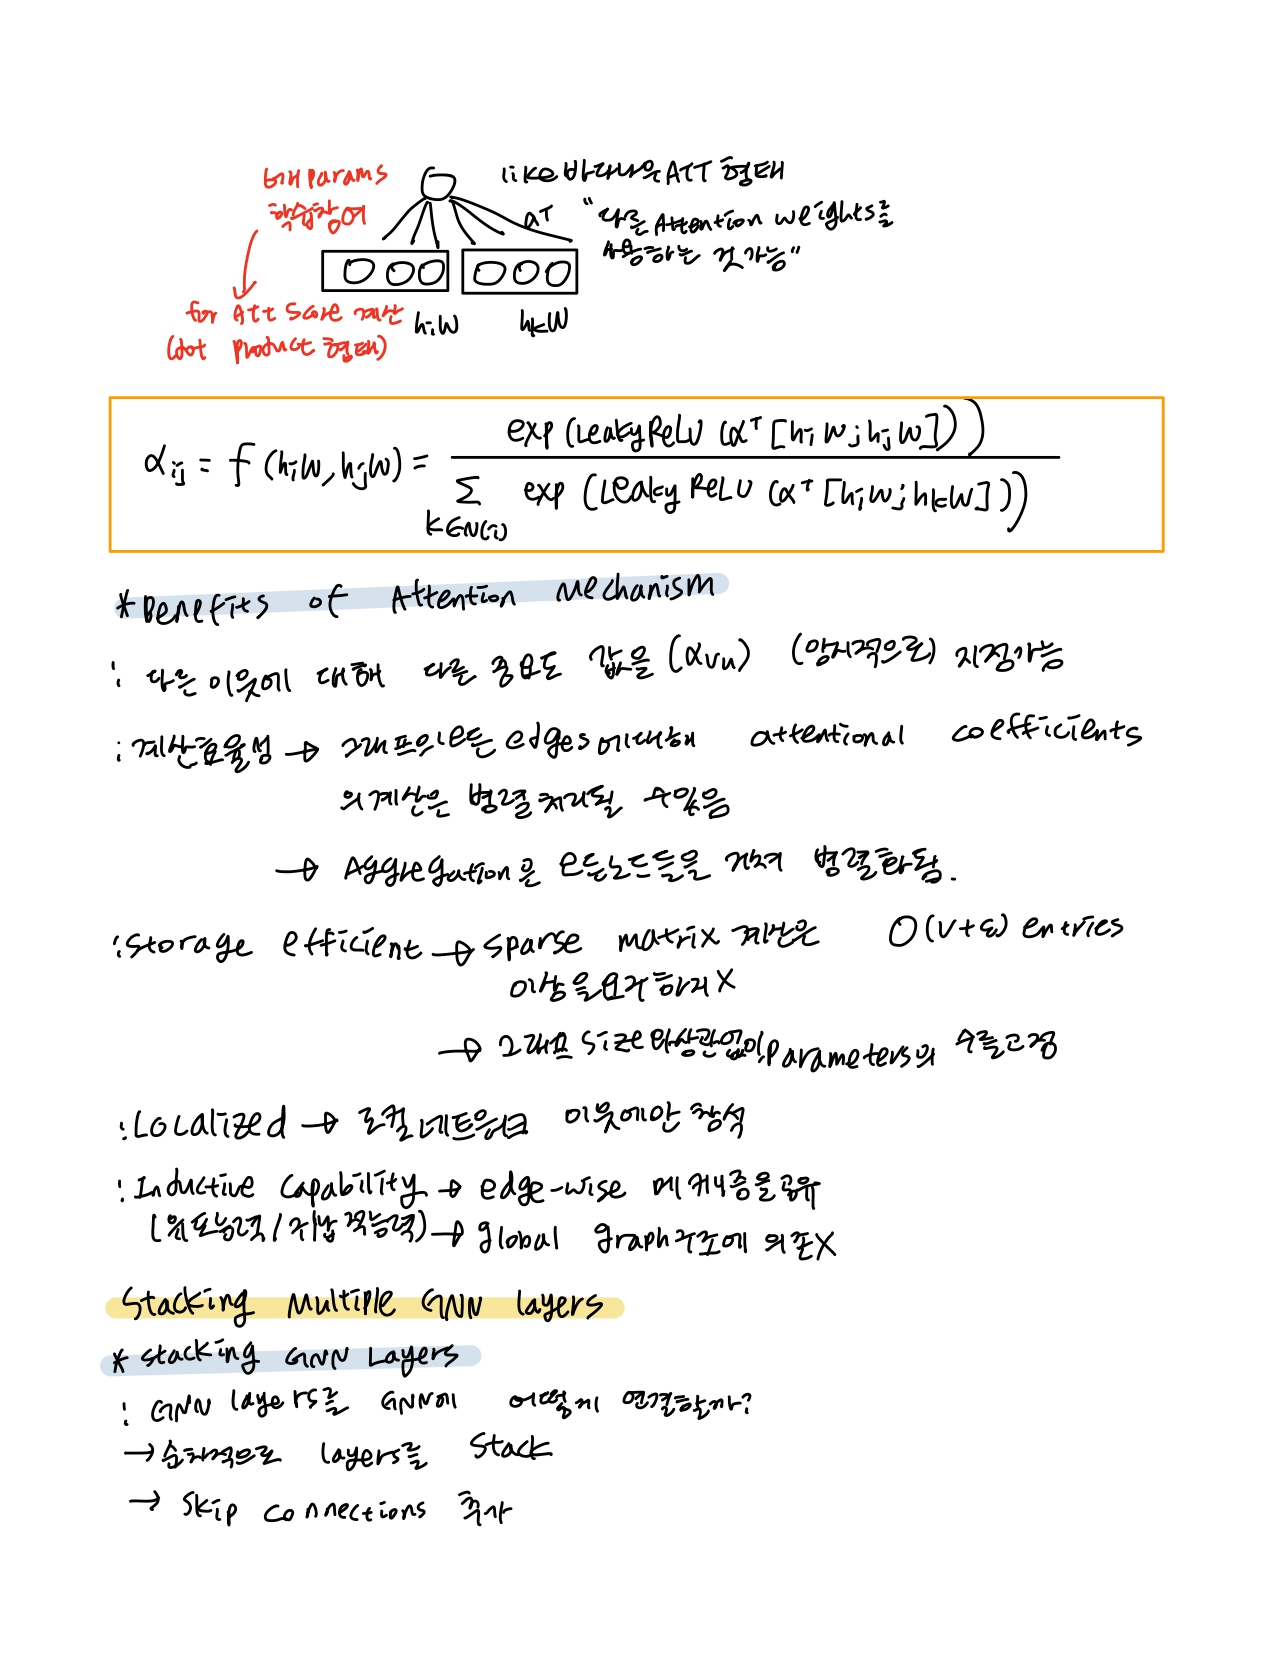 6개 params
학습참여
for Att Score 계산
(dot product 형태)
aᵀ
hᵢW
hₖW
like 바다나우 ATT 형태
"다른 Attention weights를
사용하는 것 가능"
αᵢⱼ = f(hᵢW, hⱼW) = exp(LeakyReLU(aᵀ[hᵢW;hⱼW])) / Σ k∈N(i) exp(LeakyReLU(aᵀ[hᵢW;hₖW]))
* Benefits of Attention Mechanism
: 다른 이웃에 대해 다른 중요도 값을 (αvu) (암시적으로) 지정가능
: 계산효율성 → 그래프의 모든 edges에 대해 attentional coefficients
의 계산은 병렬처리될 수 있음
→ Aggregation은 모든 노드들을 거쳐 병렬화됨.
: Storage efficient → sparse matrix 계산은 O(V+E) entries
이상을 요구하지 X
→ 그래프 size와 상관없이 parameters의 수를 고정
: Localized → 로컬 네트워크 이웃에만 참석
: Inductive Capability → edge-wise 메커니즘을 공유
(유도능력/귀납적능력) → global graph 구조에 의존X
Stacking Multiple GNN layers
* Stacking GNN Layers
: GNN layers를 GNN에 어떻게 연결할까?
→ 순차적으로 layers를 Stack
→ Skip connections 추가